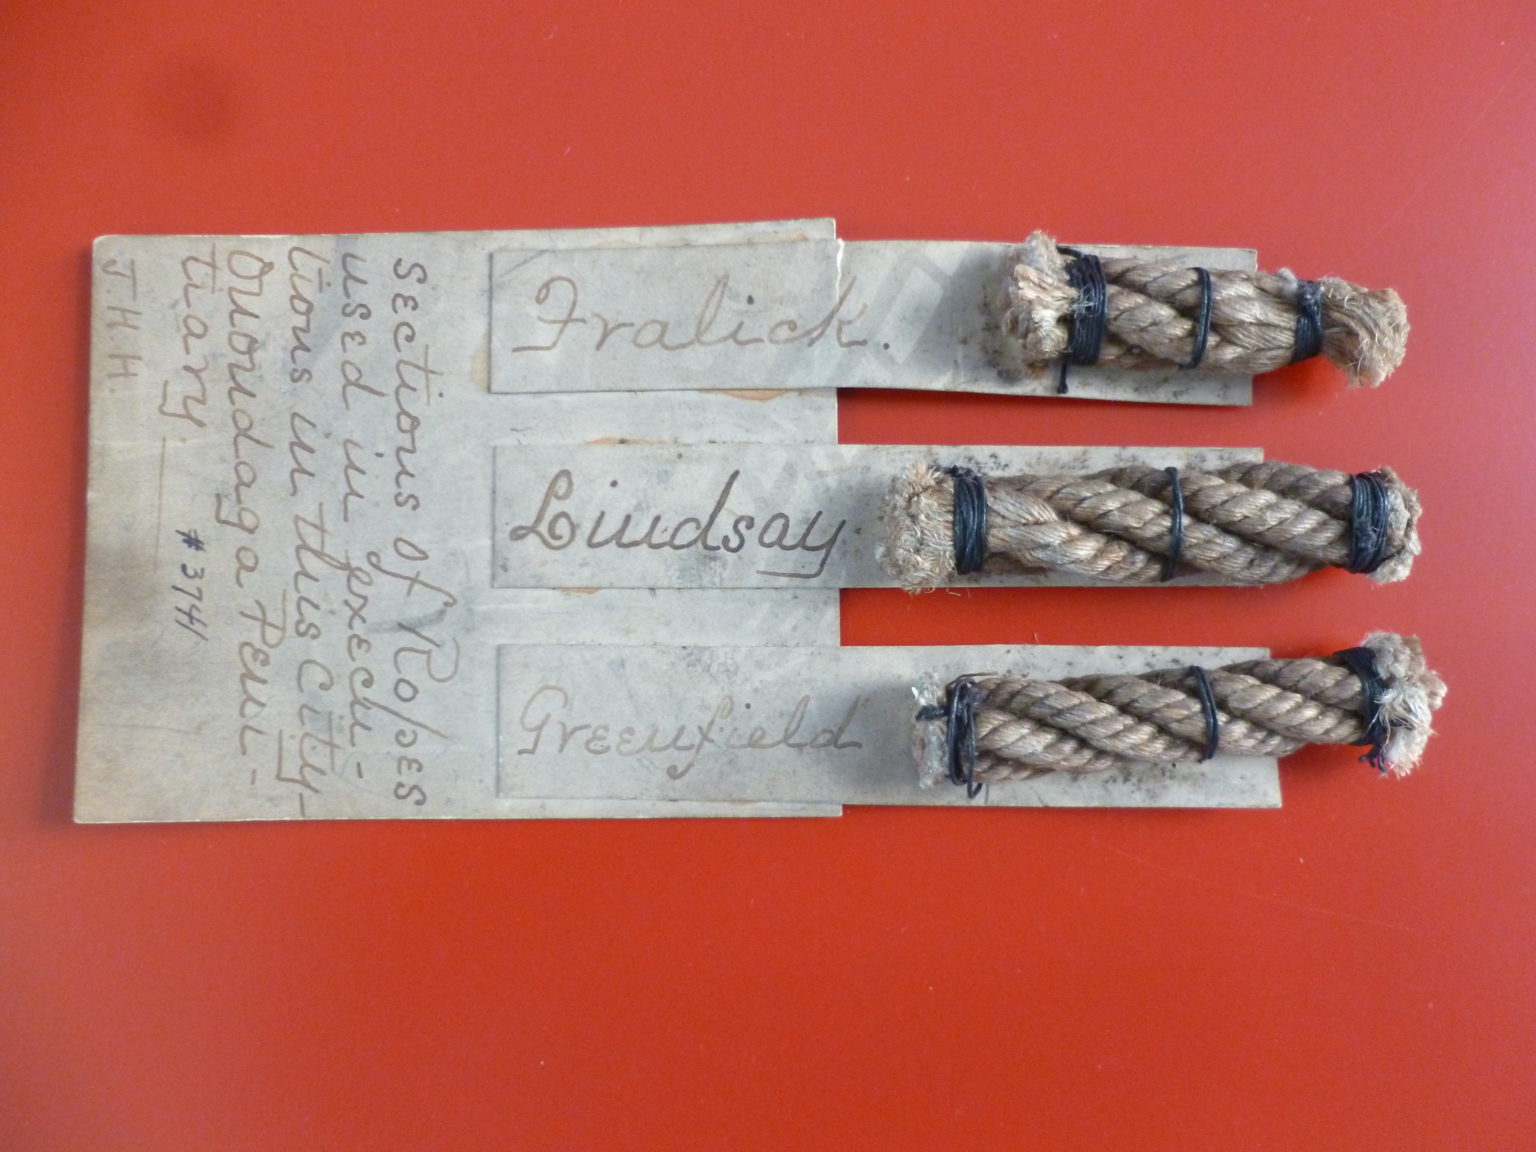 Sections of Ropes
used in Execu-
tions in this City-
Onondaga Peni-
tiary
#3741
J.H.H.
Fralick.
Lindsay
Greenfield